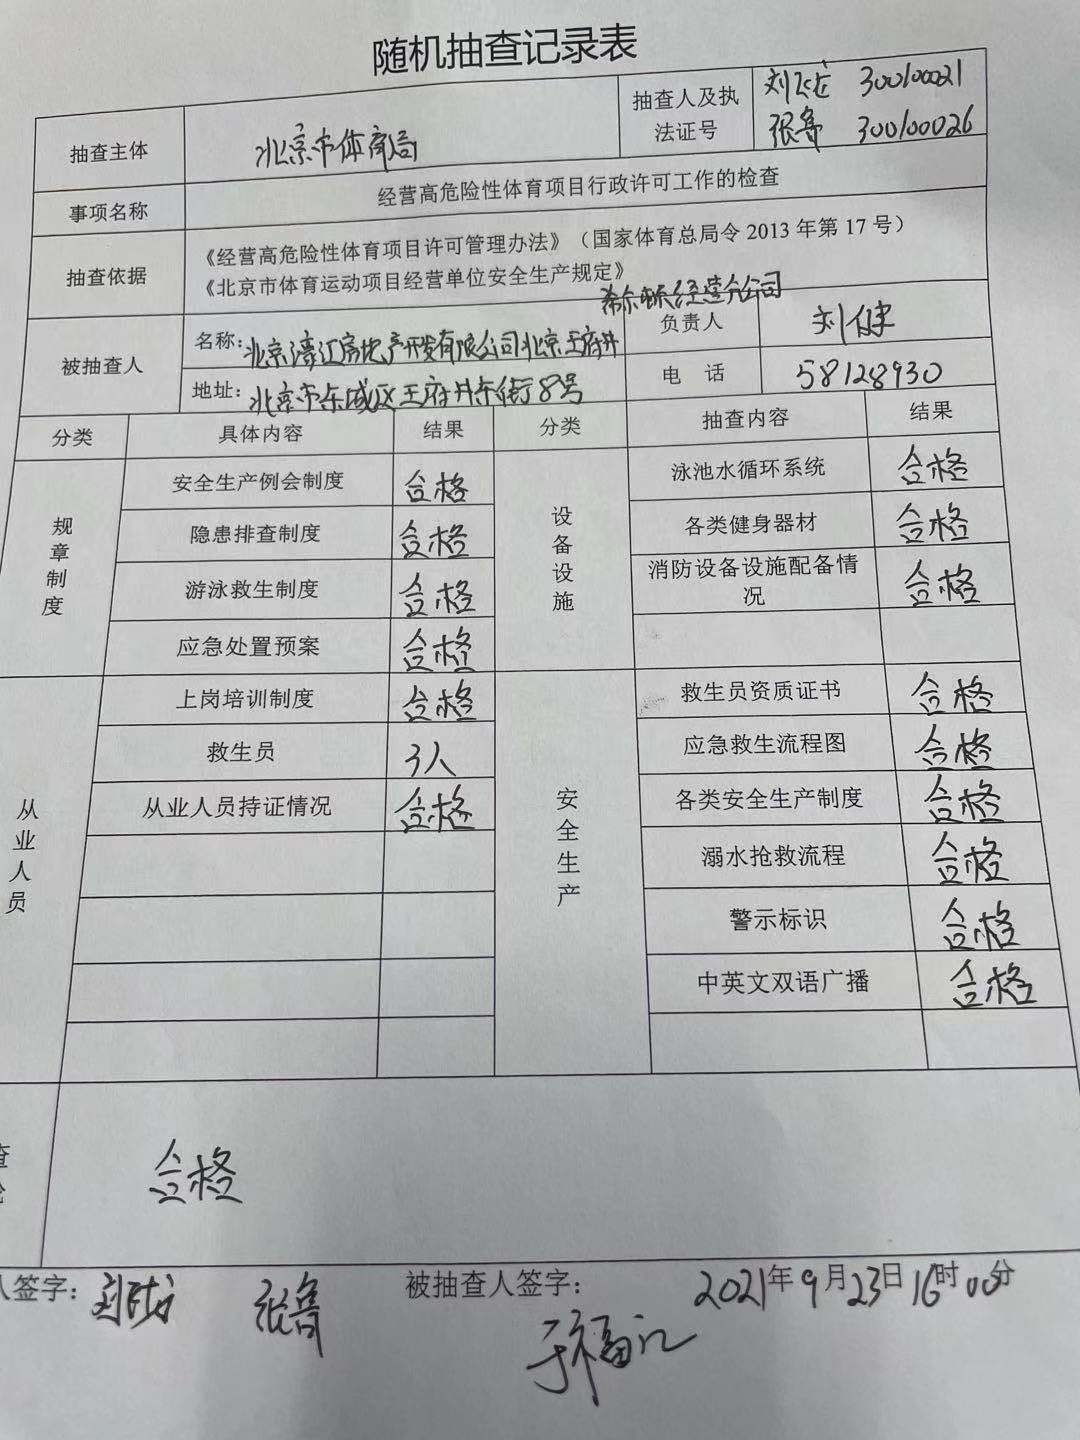 随机抽查记录表
抽查主体 北京市体育局 抽查人及执法证号 刘 300100021
张 300100026
事项名称 经营高危险性体育项目行政许可工作的检查
抽查依据 《经营高危险性体育项目许可管理办法》（国家体育总局令 2013 年第 17 号）
《北京市体育运动项目经营单位安全生产规定》
希尔顿经营分公司
被抽查人 名称：北京濠江房地产开发有限公司北京王府井 负责人 刘健
地址：北京市东城区王府井东街8号 电 话 58128930
分类 具体内容 结果 分类 抽查内容 结果
规章制度 安全生产例会制度 合格 设备设施 泳池水循环系统 合格
隐患排查制度 合格 各类健身器材 合格
游泳救生制度 合格 消防设备设施配备情况 合格
应急处置预案 合格
从业人员 上岗培训制度 合格 安全生产 救生员资质证书 合格
救生员 3人 应急救生流程图 合格
从业人员持证情况 合格 各类安全生产制度 合格
溺水抢救流程 合格
警示标识 合格
中英文双语广播 合格
合格
人签字： 刘 张 被抽查人签字： 2021年9月23日16时00分
于福江